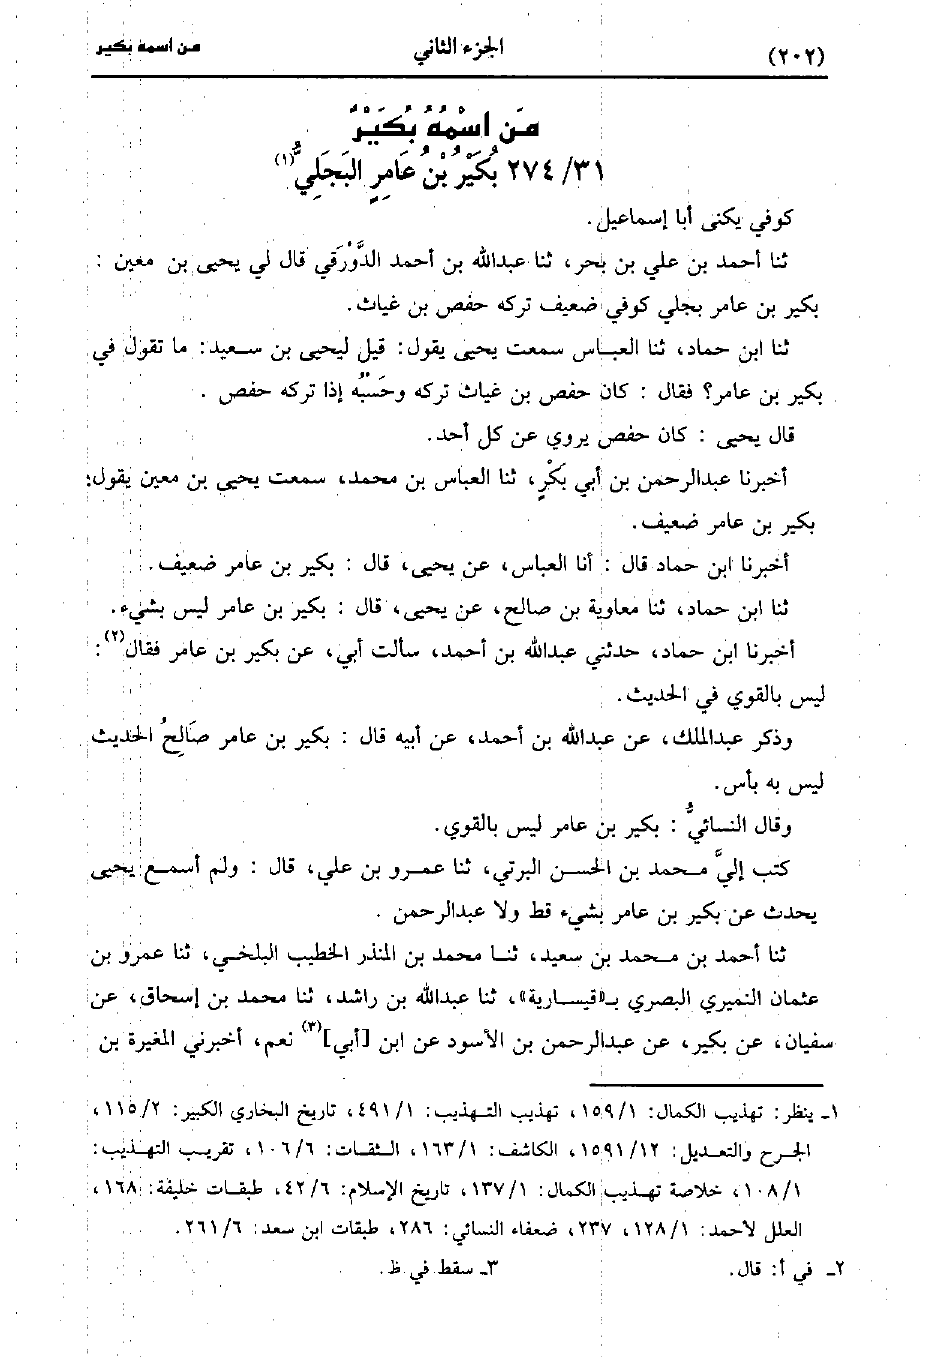 (٢٠٢) الجزء الثاني من اسمه بكير
مَن اسْمُهُ بُكَيْرٌ
٢٧٤/٣١ بُكَيْرُ بْنُ عَامِرٍ البَجَلِيُّ(١)
كوفي يكنى أبا إسماعيل.
ثنا أحمد بن علي بن بحر، ثنا عبدالله بن أحمد الدَّوْرَقي قال لي يحيى بن معين :
بكير بن عامر بجلي كوفي ضعيف تركه حفص بن غياث.
ثنا ابن حماد، ثنا العباس سمعت يحيى يقول: قيل ليحيى بن سعيد: ما تقول في
بكير بن عامر؟ فقال : كان حفص بن غياث تركه وحَسْبُه إذا تركه حفص .
قال يحيى : كان حفص يروي عن كل أحد.
أخبرنا عبدالرحمن بن أبي بَكْرٍ، ثنا العباس بن محمد، سمعت يحيى بن معين يقول:
بكير بن عامر ضعيف.
أخبرنا ابن حماد قال : أنا العباس، عن يحيى، قال : بكير بن عامر ضعيف.
ثنا ابن حماد، ثنا معاوية بن صالح، عن يحيى، قال : بكير بن عامر ليس بشيء.
أخبرنا ابن حماد، حدثني عبدالله بن أحمد، سألت أبي، عن بكير بن عامر فقال(٢):
ليس بالقوي في الحديث.
وذكر عبدالملك، عن عبدالله بن أحمد، عن أبيه قال : بكير بن عامر صَالِحُ الحديث
ليس به بأس.
وقال النسائيُّ : بكير بن عامر ليس بالقوي.
كتب إليَّ محمد بن الحسن البرتي، ثنا عمرو بن علي، قال : ولم أسمع يحيى
يحدث عن بكير بن عامر بشيء قط ولا عبدالرحمن .
ثنا أحمد بن محمد بن سعيد، ثنا محمد بن المنذر الخطيب البلخي، ثنا عمرو بن
عثمان النميري البصري بـ«قيسارية»، ثنا عبدالله بن راشد، ثنا محمد بن إسحاق، عن
سفيان، عن بكير، عن عبدالرحمن بن الأسود عن ابن [أبي](٣) نعم، أخبرني المغيرة بن
١ـ ينظر: تهذيب الكمال: ١٥٩/١، تهذيب التهذيب: ٤٩١/١، تاريخ البخاري الكبير: ١١٥/٢،
الجرح والتعديل: ١٥٩١/١٢، الكاشف: ١٦٣/١، الثقات: ١٠٦/٦، تقريب التهذيب:
١٠٨/١، خلاصة تهذيب الكمال: ١٣٧/١، تاريخ الإسلام: ٤٢/٦، طبقات خليفة: ١٦٨،
العلل لأحمد: ١٢٨/١، ٢٣٧، ضعفاء النسائي: ٢٨٦، طبقات ابن سعد: ٢٦١/٦.
٢ـ في أ: قال. ٣ـ سقط في ظ.